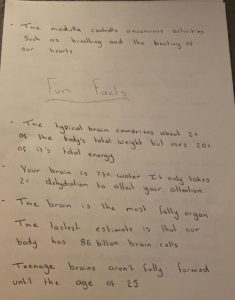 - The medulla controls unconcious activities
such as breathing and the beating of
our hearts
Fun Facts
- The typical brain comprises about 2%
of the body's total weight but uses 20%
of it's total energy
- Your brain is 73% water It only takes
2% dehydration to affect your attention
- The brain is the most fatty organ
The lastest estimate is that our
body has 86 billion brain cells
Teenage brains aren't fully formed
until the age of 25